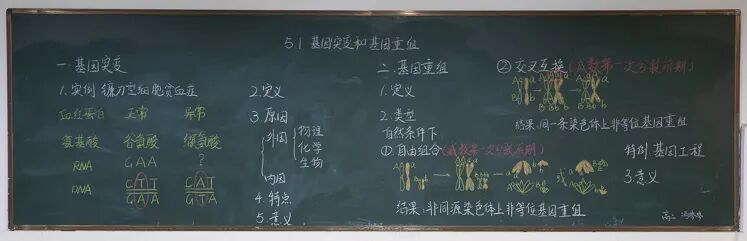 5.1 基因突变和基因重组
一. 基因突变
1. 实例 镰刀型细胞贫血症
血红蛋白 正常 异常
氨基酸 谷氨酸 缬氨酸
RNA GAA ?
DNA CTT CAT
GAA GTA
2. 定义
3. 原因
外因 物理
化学
生物
内因
4. 特点
5. 意义
二. 基因重组
1. 定义
2. 类型
自然条件下
① 自由组合 (减数第一次分裂后期)
或
结果: 非同源染色体上非等位基因重组
② 交叉互换 (减数第一次分裂前期)
结果: 同一条染色体上非等位基因重组
特例: 基因工程
3. 意义
高二